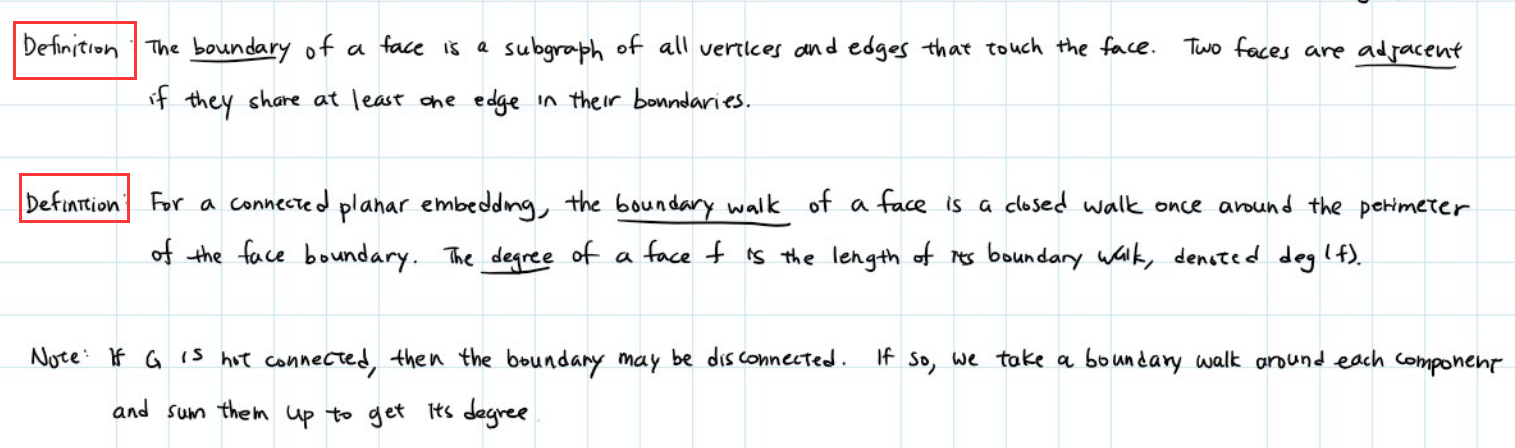 Definition: The boundary of a face is a subgraph of all vertices and edges that touch the face. Two faces are adjacent
if they share at least one edge in their boundaries.
Definition: For a connected planar embedding, the boundary walk of a face is a closed walk once around the perimeter
of the face boundary. The degree of a face f is the length of its boundary walk, denoted deg(f).
Note: If G is not connected, then the boundary may be disconnected. If so, we take a boundary walk around each component
and sum them up to get its degree.